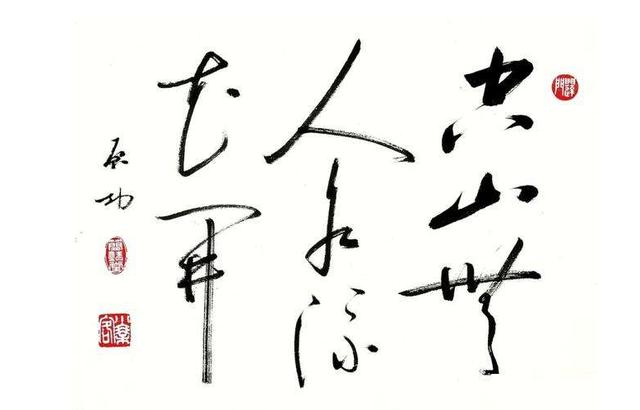 空山無
人水流
花開
启功